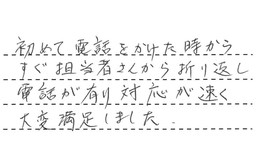 初めて電話をかけた時から
すぐ担当者さんから折り返し
電話が有り対応が速く
大変満足しました.